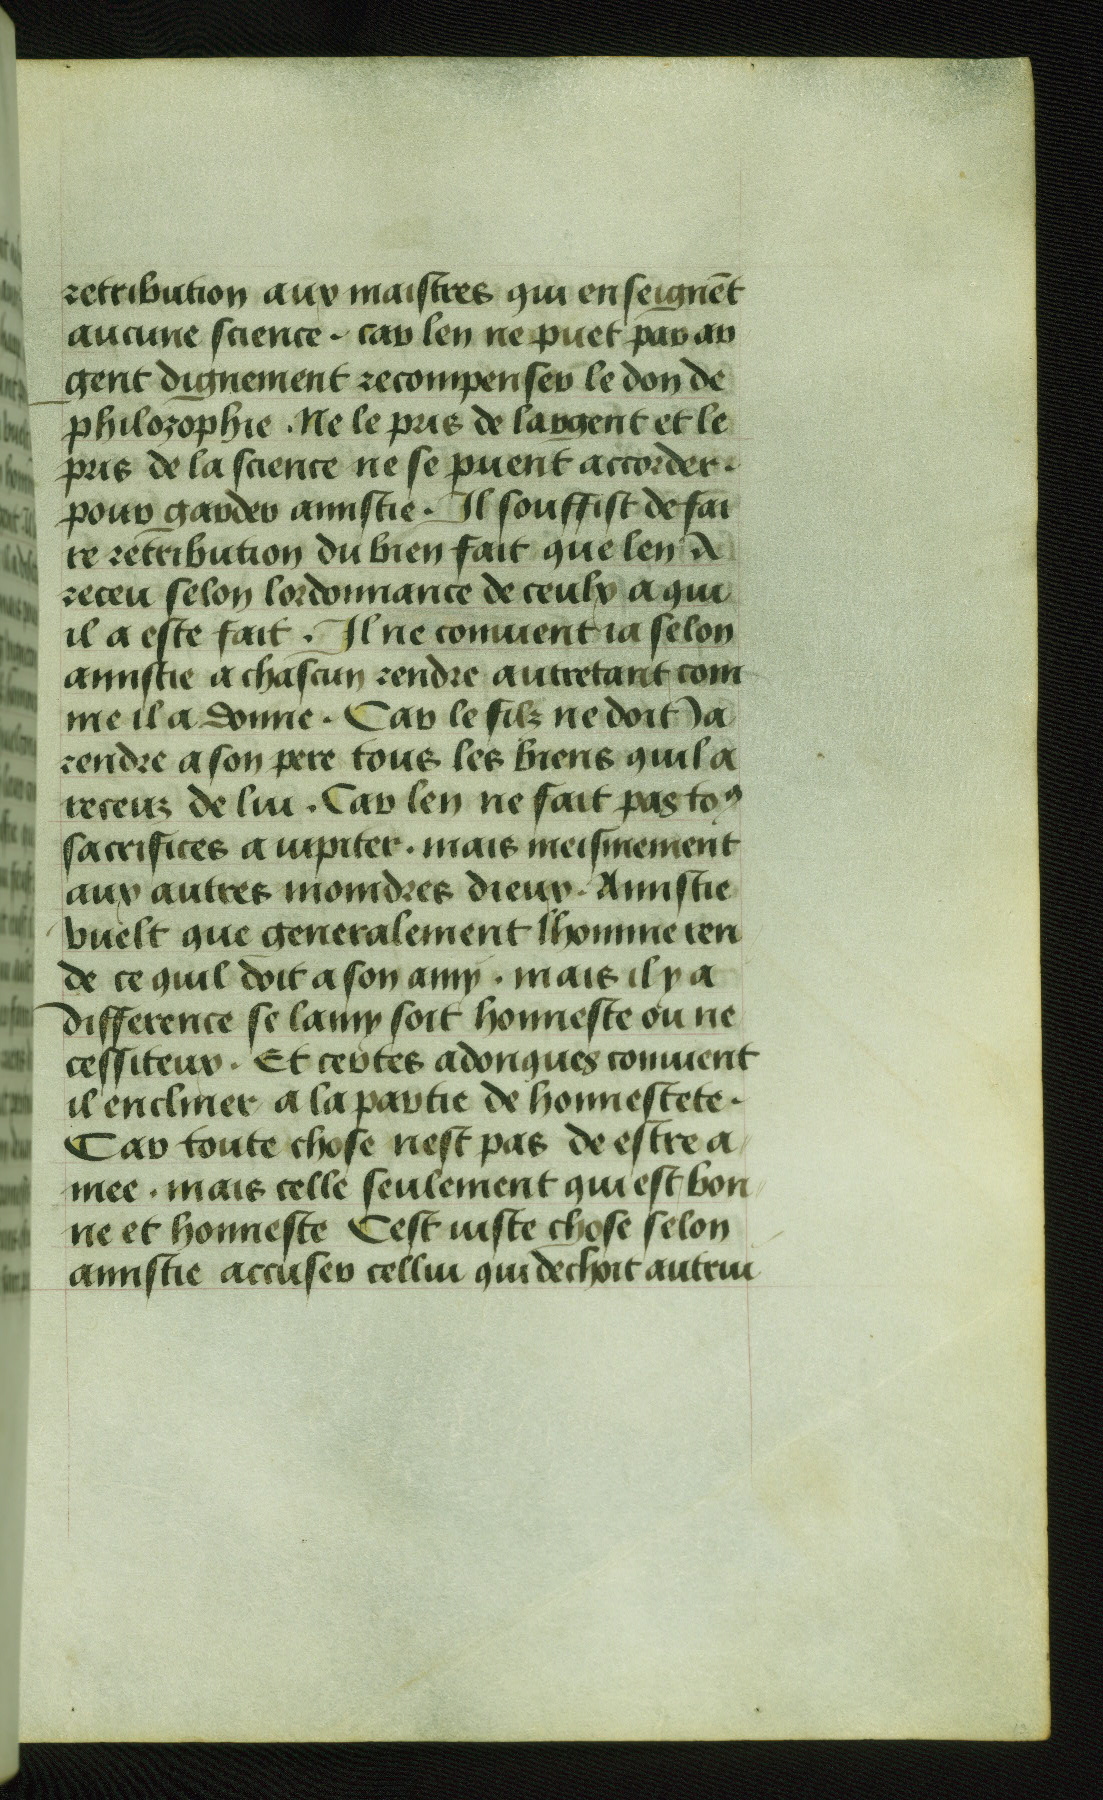 retribution aux maistres qui enseignēt
aucune science. car len ne puet par ar
gent dignement recompenser le don de
philozophie. Ne le pris de largent et le
pris de la science ne se puent accorder.
pour garder amistie. Il souffist de fai
re retribution du bien fait que len A
receu selon lordonnance de ceulx a qui
il a este fait. Il ne conuient ia selon
amistie a chascun rendre autretant com
me il a donne. Car le filz ne doit Ja
rendre a son pere tous les biens quil a
receuz de lui. Car len ne fait pas toꝰ
sacrifices a iupiter. mais meismement
aux autres moindres dieux. Amistie
vuelt que generalement lhomme ren
de ce quil doit a son amy. mais il y a
difference se lamy soit honneste ou ne
cessiteux. Et certes adonques conuient
il encliner a la partie de honnestete.
Car toute chose nest pas de estre a
mee. mais celle seulement qui est bon
ne et honneste Cest iuste chose selon
amistie accuser cellui qui dechoit autrui